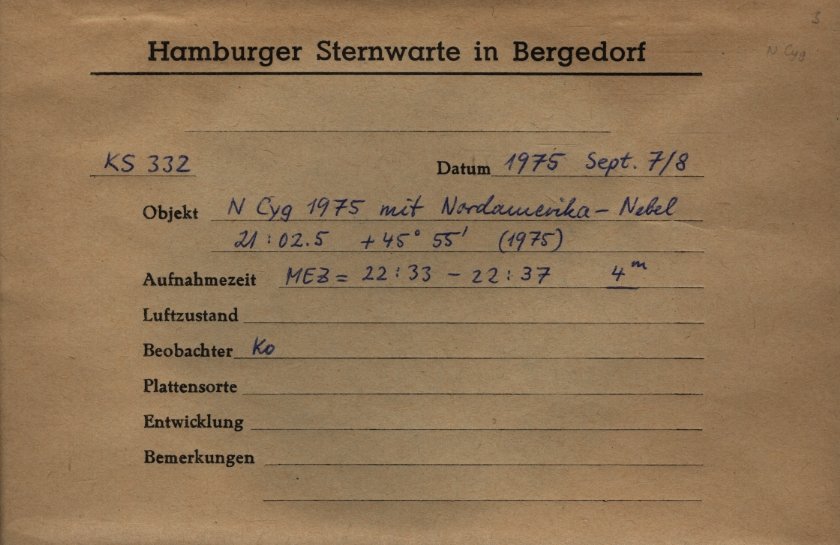 3
N Cyg
Hamburger Sternwarte in Bergedorf
KS 332 Datum 1975 Sept. 7/8
Objekt N Cyg 1975 mit Nordamerika - Nebel
21:02.5 +45° 55' (1975)
Aufnahmezeit MEZ = 22:33 - 22:37 4m
Luftzustand
Beobachter Ko
Plattensorte
Entwicklung
Bemerkungen